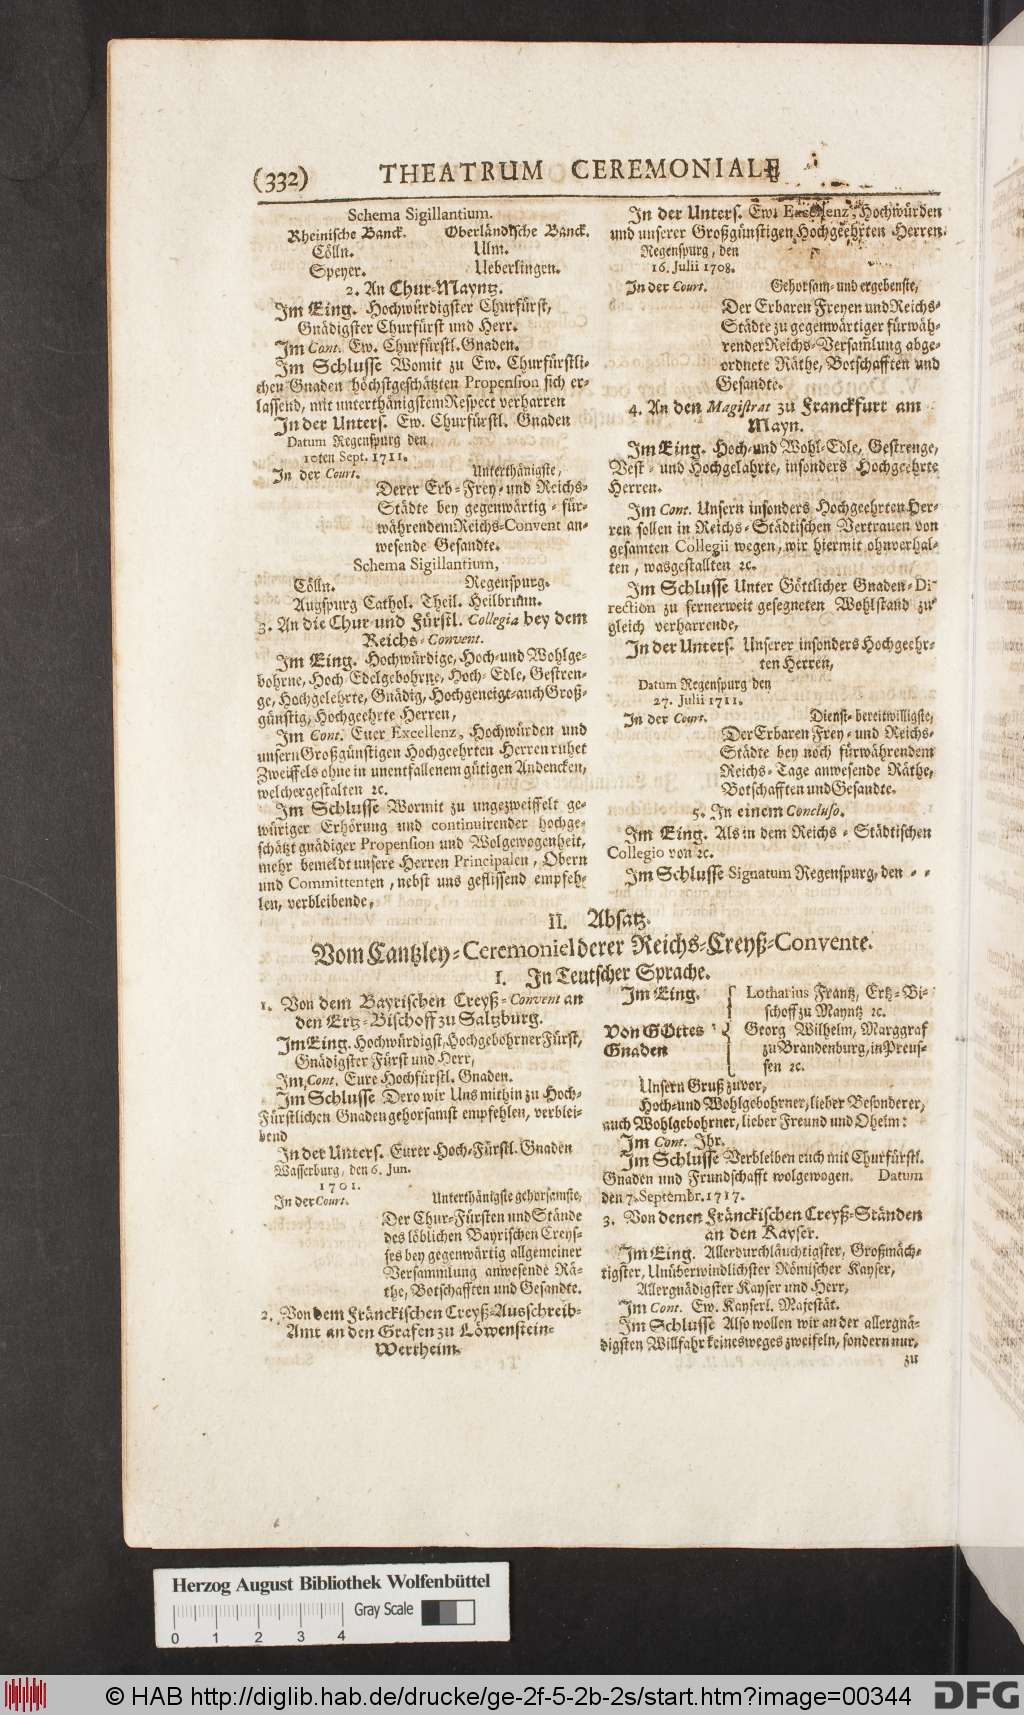 (332) THEATRUM CEREMONIALE
Schema Sigillantium.
Rheinische Banck. Oberländische Banck.
Cölln. Ulm.
Speyer. Ueberlingen.
2. An Chur-Mayntz.
Im Eing. Hochwürdigster Churfürst,
Gnädigster Churfürst und Herr.
Im Cont. Ew. Churfürstl. Gnaden.
Im Schlusse Womit zu Ew. Churfürstli-
chen Gnaden höchstgeschätzten Propension sich er-
lassend, mit unterthänigstem Respect verharren
In der Unters. Ew. Churfürstl. Gnaden
Datum Regenspurg den
10ten Sept. 1711.
In der Court. Unterthänigste,
Derer Erb-Frey-und Reichs-
Städte bey gegenwärtig-für-
währendem Reichs-Convent an-
wesende Gesandte.
Schema Sigillantium,
Cölln. Regenspurg.
Augspurg Cathol. Theil. Heilbrunn.
3. An die Chur-und Fürstl. Collegia bey dem
Reichs-Convent.
Im Eing. Hochwürdige, Hoch-und Wohlge-
bohrne, Hoch Edelgebohrne, Hoch-Edle, Gestren-
ge, Hochgelehrte, Gnädig, Hochgeneigt-auch Groß-
günstig, Hochgeehrte Herren,
Im Cont. Euer Excellenz, Hochwürden und
unsern Großgünstigen Hochgeehrten Herren ruhet
Zweiffels ohne in unentfallenem gütigen Andencken,
welchergestalten ꝛc.
Im Schlusse Wormit zu ungezweiffelt ge-
würiger Erhörung und continuirender hochge-
schätzt gnädiger Propension und Wolgewogenheit,
mehr bemeldt unsere Herren Principalen, Obern
und Committenten, nebst uns geflissend empfeh-
len, verbleibende,
In der Unters. Ew. Excellenz, Hochwürden
und unserer Großgünstigen Hochgeehrten Herren.
Regenspurg, den
16. Julii 1708.
In der Court. Gehorsam-und ergebenste,
Der Erbaren Freyen und Reichs-
Städte zu gegenwärtiger fürwäh-
render Reichs-Versamlung abge-
ordnete Räthe, Botschafften und
Gesandte.
4. An den Magistrat zu Franckfurt am
Mayn.
Im Eing. Hoch-und Wohl-Edle, Gestrenge,
Vest-und Hochgelahrte, insonders Hochgeehrte
Herren.
Im Cont. Unsern insonders Hochgeehrten Her-
ren sollen in Reichs-Städtischen Vertrauen von
gesamten Collegii wegen, wir hiermit ohnverhal-
ten, wasgestallten ꝛc.
Im Schlusse Unter Göttlicher Gnaden-Di-
rection zu fernerweit gesegneten Wohlstand zu-
gleich verharrende,
In der Unters. Unserer insonders Hochgeehr-
ten Herren,
Datum Regenspurg den
27. Julii 1711.
In der Court. Dienst-bereitwilligste,
Der Erbaren Frey-und Reichs-
Städte bey noch fürwährendem
Reichs-Tage anwesende Räthe,
Botschafften und Gesandte.
5. In einem Concluso.
Im Eing. Als in dem Reichs-Städtischen
Collegio von ꝛc.
Im Schlusse Signatum Regenspurg, den - -
II. Absatz.
Vom Cantzley-Ceremoniel derer Reichs-Creyß-Convente.
I. In Teutscher Sprache.
1. Von dem Bayrischen Creyß-Convent an
den Ertz-Bischoff zu Saltzburg.
Im Eing. Hochwürdigst, Hochgebohrner Fürst,
Gnädigster Fürst und Herr,
Im Cont. Eure Hochfürstl. Gnaden.
Im Schlusse Dero wir Uns mithin zu Hoch-
Fürstlichen Gnaden gehorsamst empfehlen, verblei-
bend
In der Unters. Eurer Hoch-Fürstl. Gnaden
Wasserburg, den 6. Jun.
1701.
In der Court. Unterthänigste gehorsamste,
Der Chur-Fürsten und Stände
des löblichen Bayrischen Creys-
ses bey gegenwärtig allgemeiner
Versammlung anwesende Rä-
the, Botschafften und Gesandte.
2. Von dem Fränckischen Creyß-Ausschreib-
Amt an den Grafen zu Löwenstein-
Wertheim.
Im Eing. Lotharius Frantz, Ertz-Bi-
schoff zu Mayntz ꝛc.
Von GOttes Georg Wilhelm, Marggraf
Gnaden zu Brandenburg, in Preus-
sen ꝛc.
Unsern Gruß zuvor,
Hoch-und Wohlgebohrner, lieber Besonderer,
auch Wohlgebohrner, lieber Freund und Oheim:
Im Cont. Ihr.
Im Schlusse Verbleiben euch mit Churfürstl.
Gnaden und Frundschafft wolgewogen. Datum
den 7. Septembr. 1717.
3. Von denen Fränckischen Creyß-Ständen
an den Kayser.
Im Eing. Allerdurchläuchtigster, Großmäch-
tigster, Unüberwindlichster Römischer Kayser,
Allergnädigster Kayser und Herr,
Im Cont. Ew. Kayserl. Majestät.
Im Schlusse Also wollen wir an der allergnä-
digsten Willfahr keinesweges zweifeln, sondern nur,
zu
Herzog August Bibliothek Wolfenbüttel
Gray Scale
0 1 2 3 4
© HAB http://diglib.hab.de/drucke/ge-2f-5-2b-2s/start.htm?image=00344 DFG